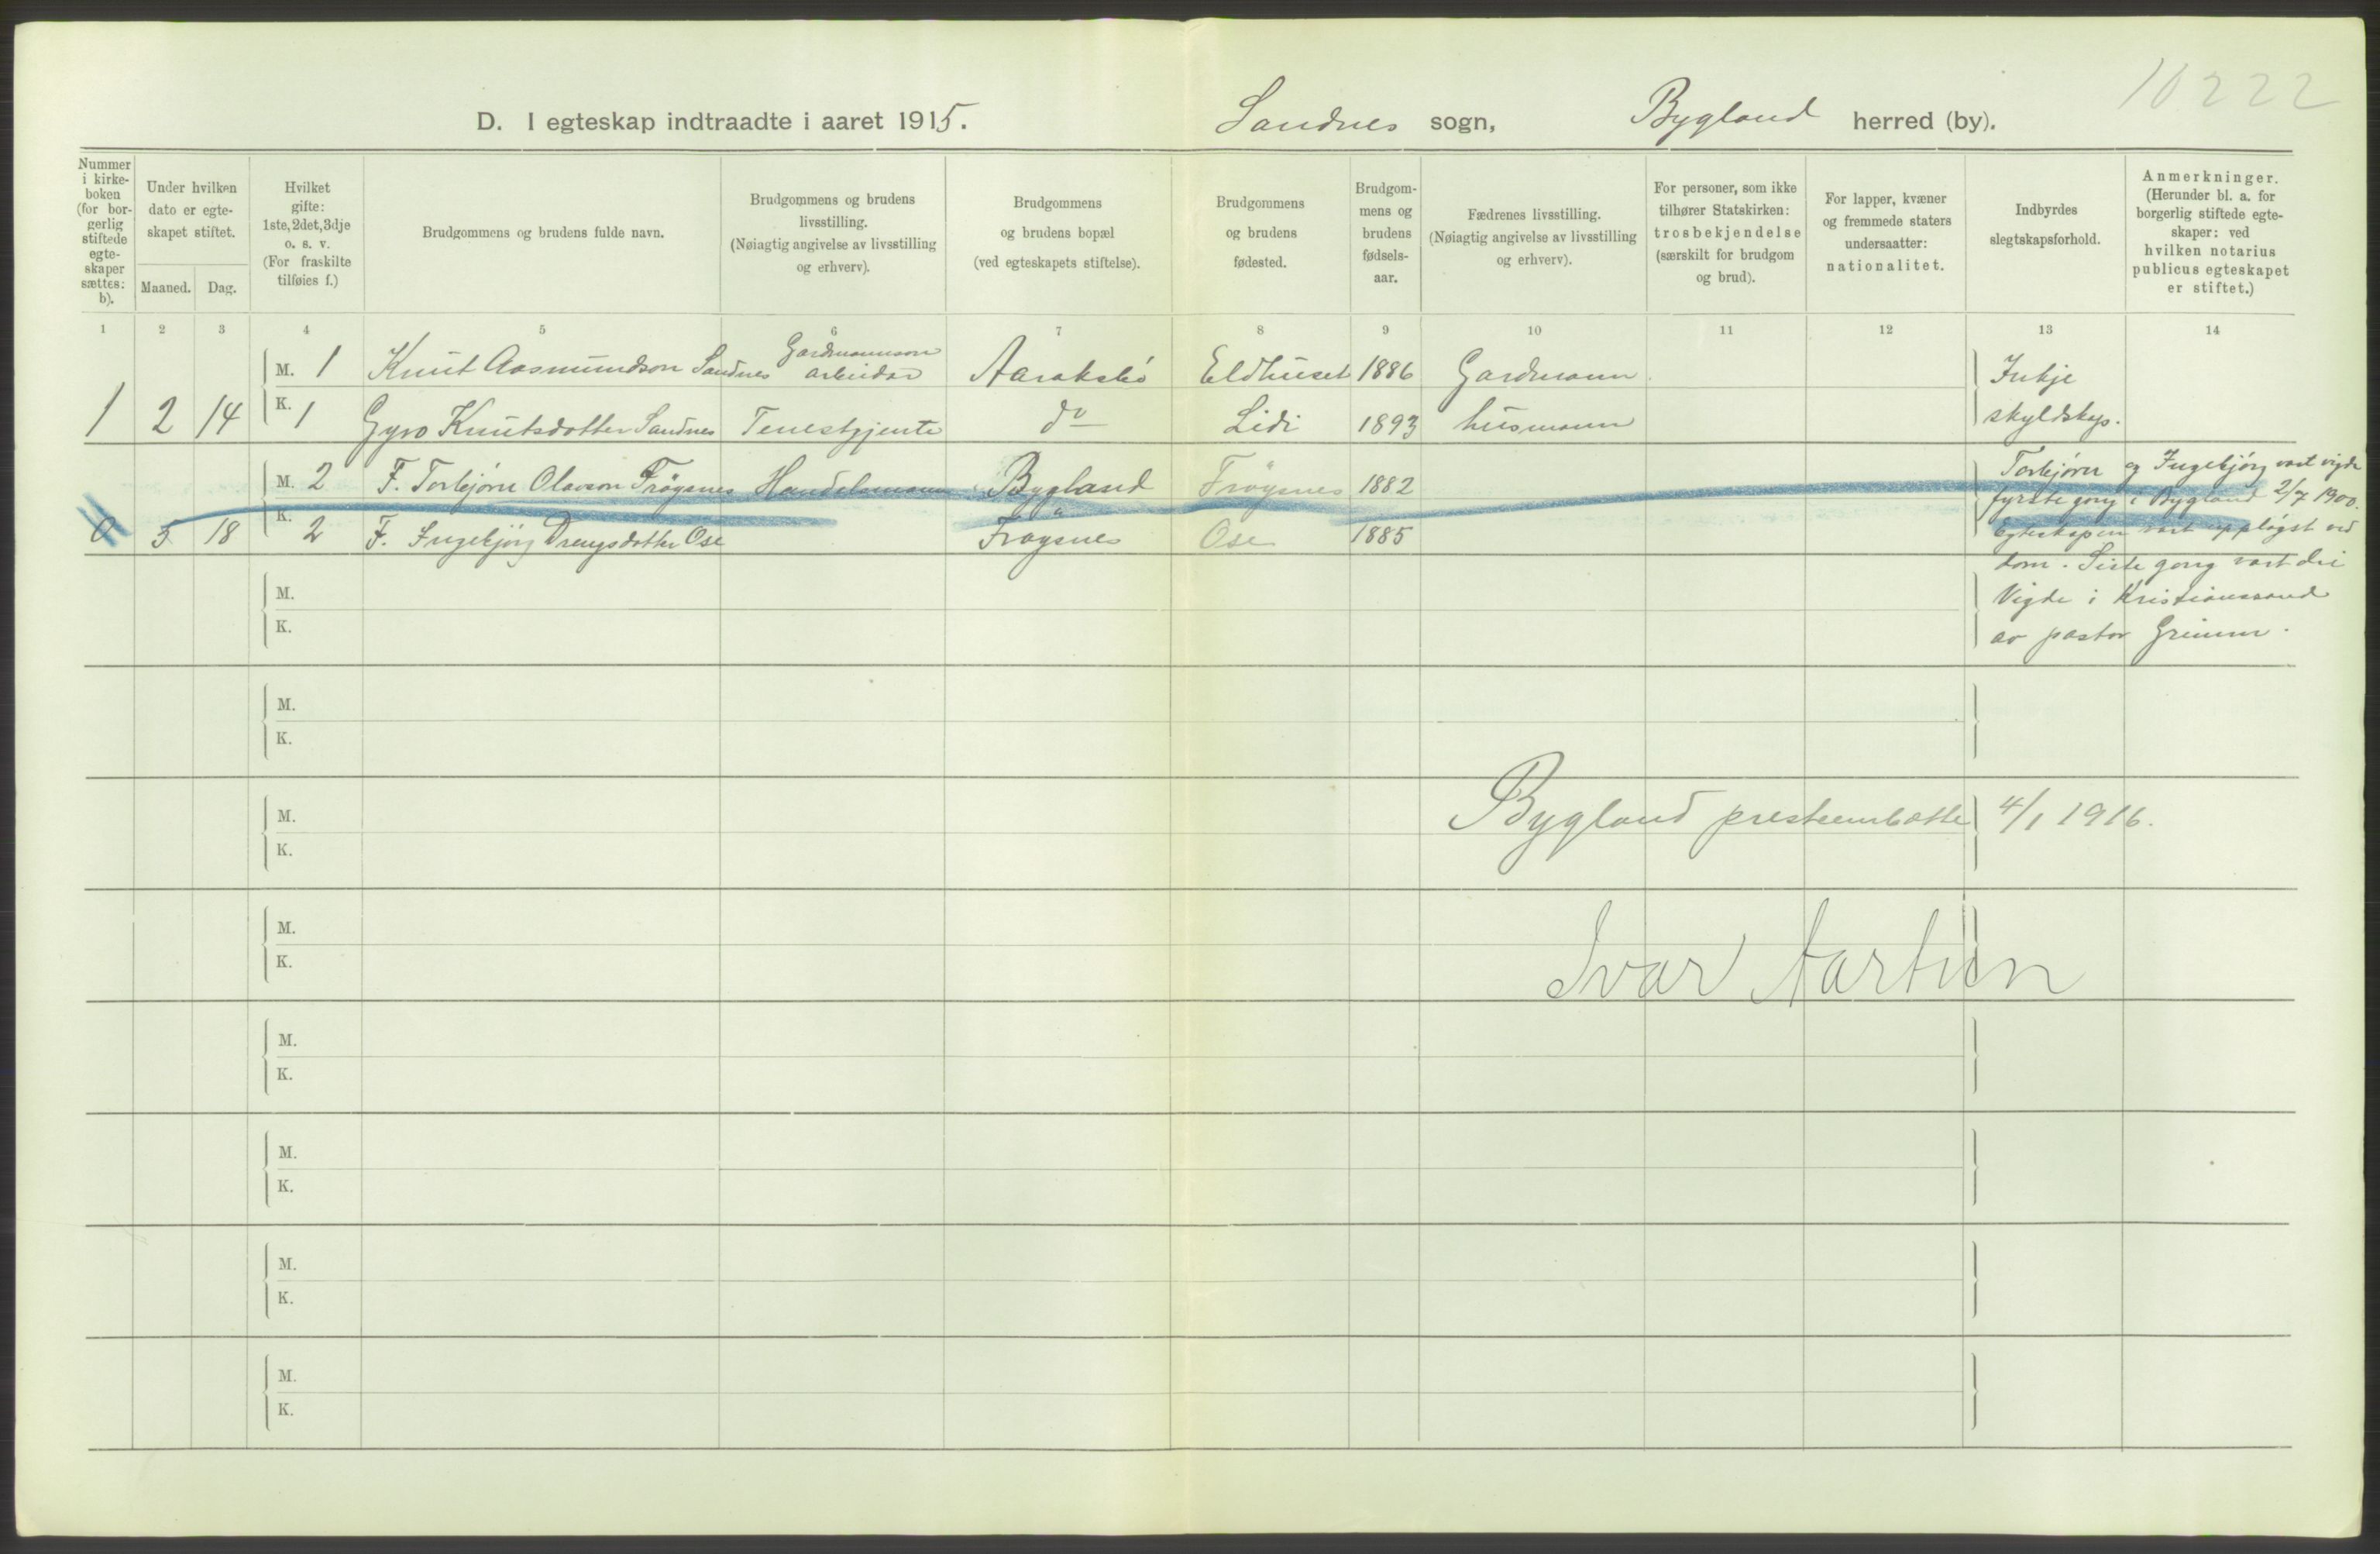 10222
D. I egteskap indtraadte i aaret 1915. Sandnes sogn, Bygland herred (by).
Nummer i kirke-boken (for bor-gerlig stiftede egte-skaper sættes: b).
Under hvilken dato er egte-skapet stiftet.
Maaned. Dag.
Hvilket gifte: 1ste, 2det, 3dje o. s. v. (For fraskilte tilføies f.)
Brudgommens og brudens fulde navn.
Brudgommens og brudens livsstilling. (Nøiagtig angivelse av livsstilling og erhverv).
Brudgommens og brudens bopæl (ved egteskapets stiftelse).
Brudgommens og brudens fødested.
Brudgom-mens og brudens fødsels-aar.
Fædrenes livsstilling. (Nøiagtig angivelse av livsstilling og erhverv).
For personer, som ikke tilhører Statskirken: trosbekjendelse (særskilt for brudgom og brud).
For lapper, kvæner og fremmede staters undersaatter: nationalitet.
Indbyrdes slegtskapsforhold.
Anmerkninger. (Herunder bl. a. for borgerlig stiftede egte-skaper: ved hvilken notarius publicus egteskapet er stiftet.)
1 2 3 4 5 6 7 8 9 10 11 12 13 14
Gardmannson
M. 1 Knut Aasmundson Sandnes arbeidar Aaraksbö Eldhuset 1886 Gardmann Inkje
1 2 14 K. 1 Gyro Knutsdotter Sandnes Tenestgjente do Lidi 1893 husmann skyldskap.
M. 2 F. Torbjörn Olavson Fröysnes Handelsmann Bygland Fröysnes 1882 Torbjörn og Ingebjörg vart vigde
fyrste gong i Bygland 2/7 1900.
0 5 18 K. 2 F. Ingebjörg Drengsdotter Ose Fröysnes Ose 1885 Egteskapen vart upplöyst ved
dom. Siste gong vart dei
M. Vigde i Kristianssand
K. av pastor Grimm.
M.
K.
M. Bygland prestembætte 4/1 1916.
K.
M.
K. Ivar Aartun
M.
K.
M.
K.
M.
K.
M.
K.